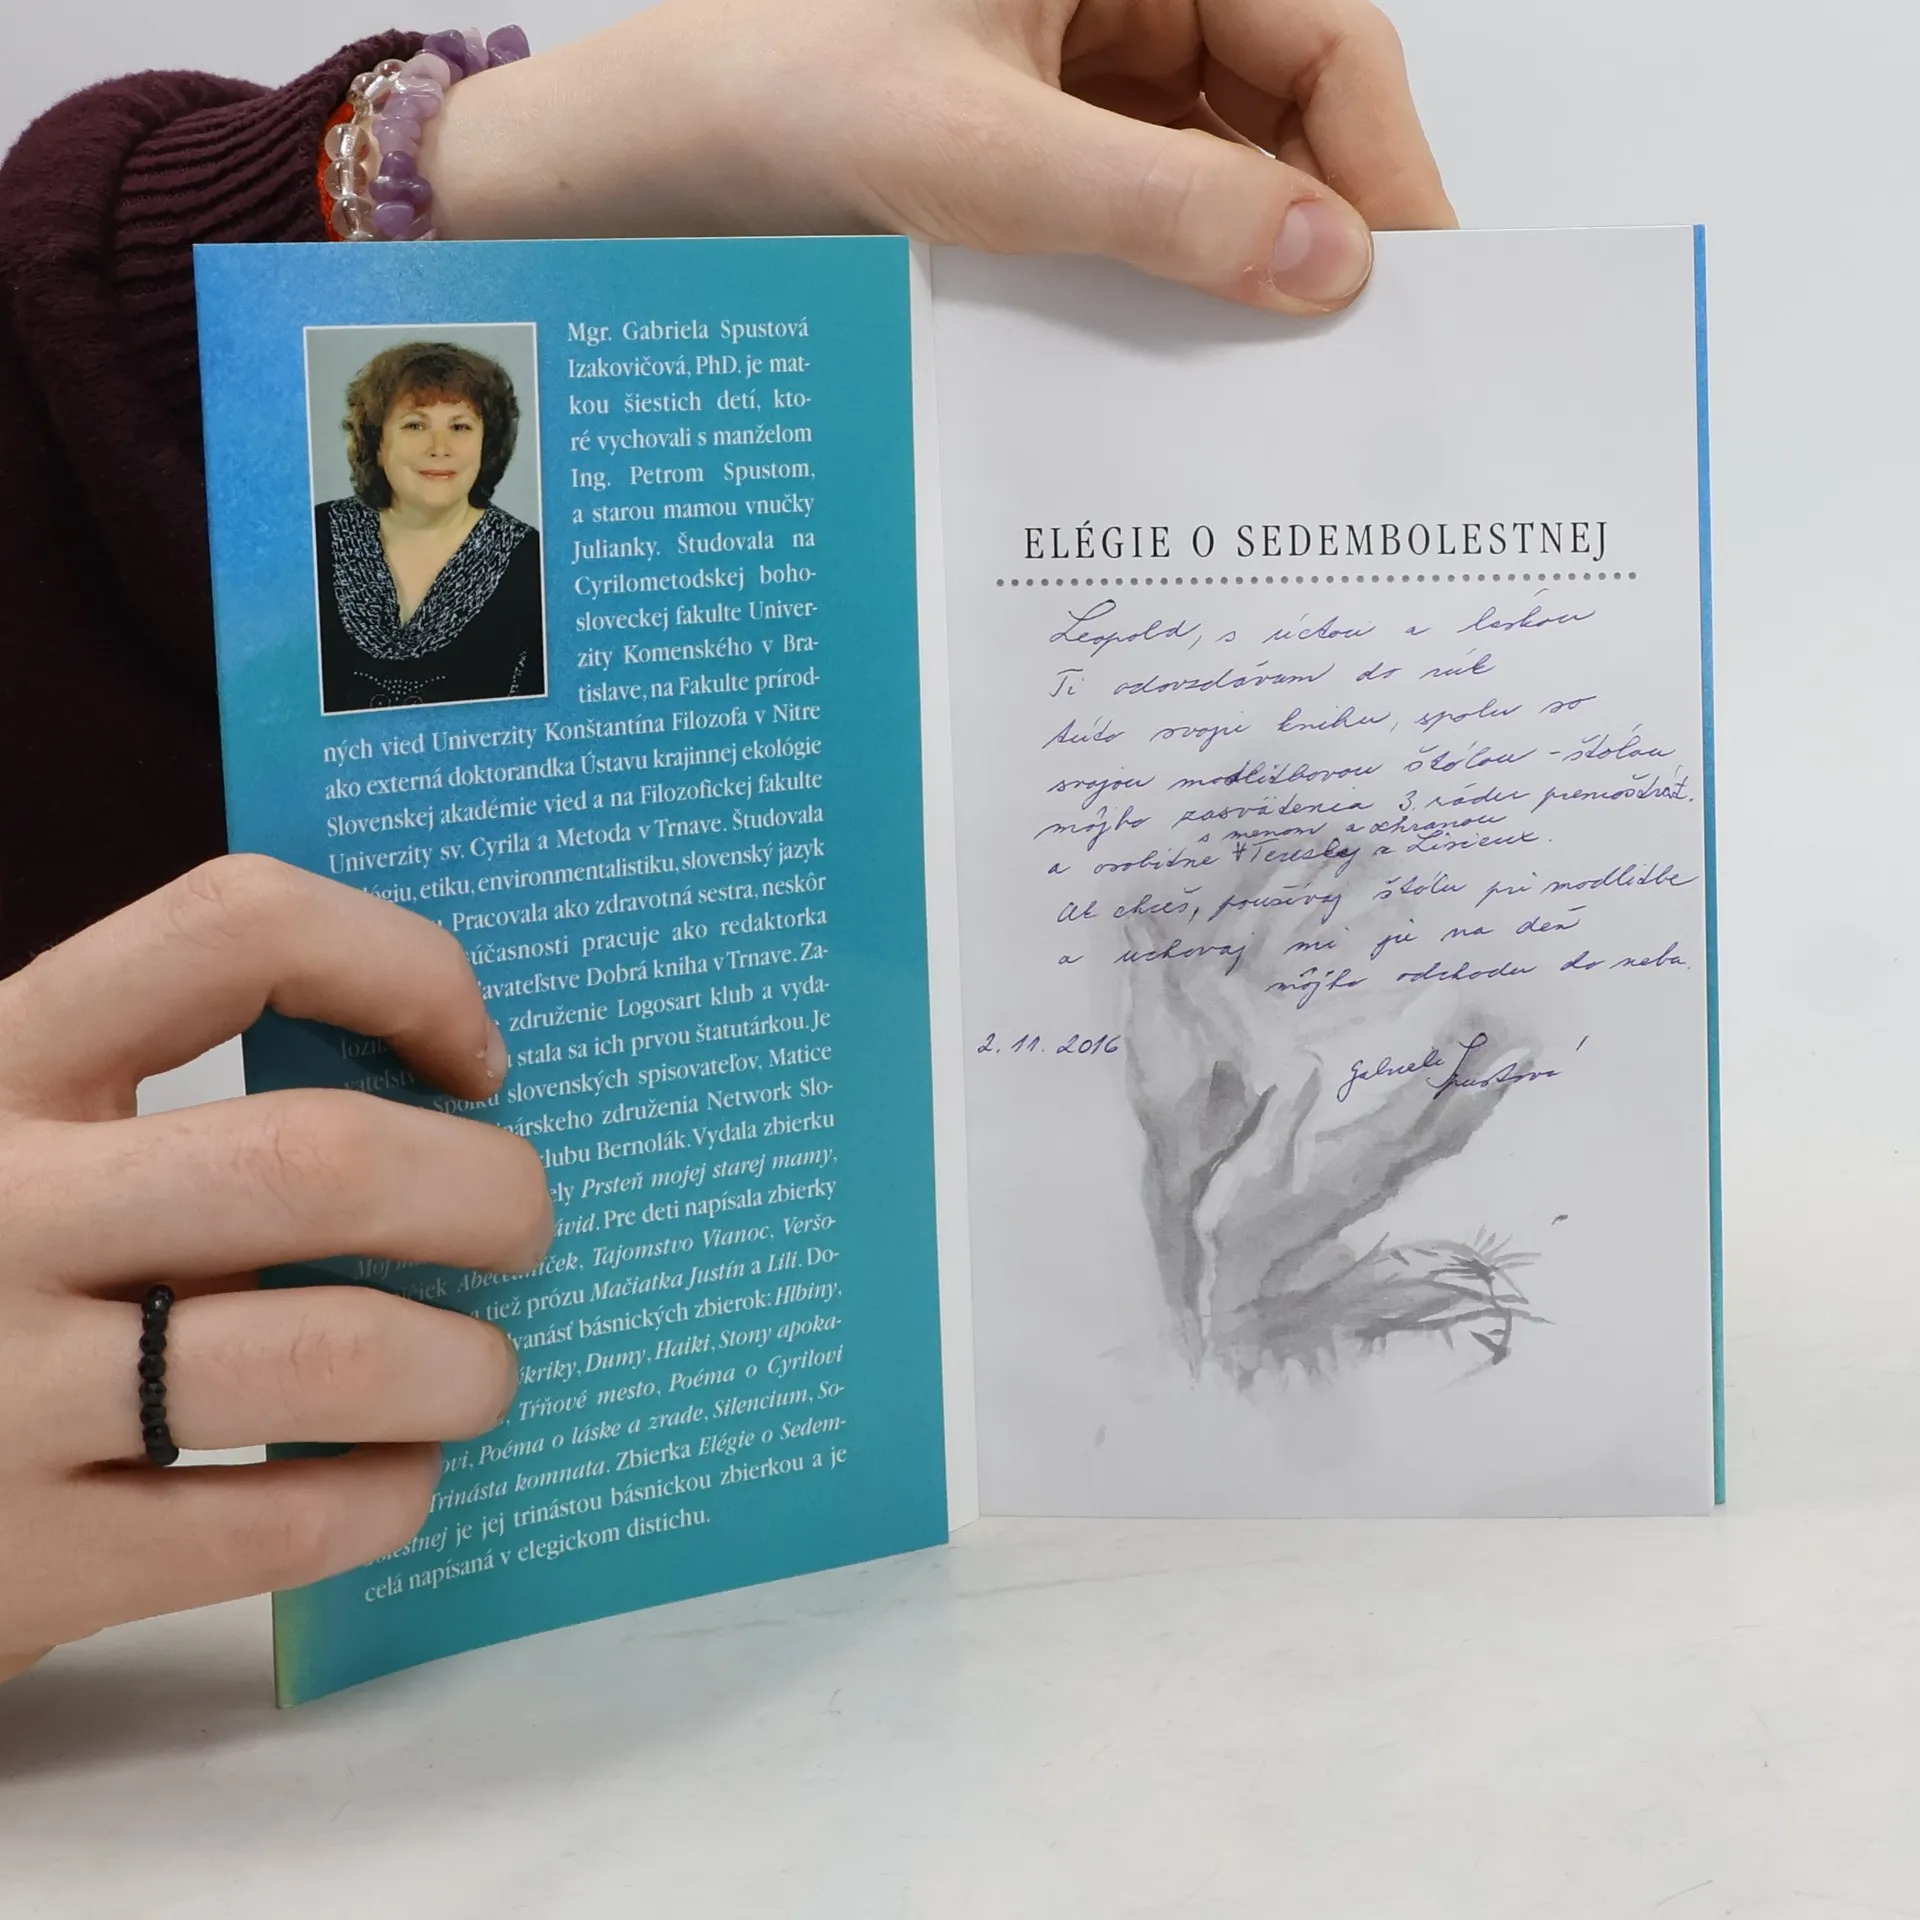 Mgr. Gabriela Spustová
Izakovičová, PhD. je mat-
kou šiestich detí, kto-
ré vychovali s manželom
Ing. Petrom Spustom,
a starou mamou vnučky
Julianky. Študovala na
Cyrilometodskej boho-
sloveckej fakulte Univer-
zity Komenského v Bra-
tislave, na Fakulte prírod-
ných vied Univerzity Konštantína Filozofa v Nitre
ako externá doktorandka Ústavu krajinnej ekológie
Slovenskej akadémie vied a na Filozofickej fakulte
Univerzity sv. Cyrila a Metoda v Trnave. Študovala
etiku, environmentalistiku, slovenský jazyk
Pracovala ako zdravotná sestra, neskôr
súčasnosti pracuje ako redaktorka
Dobrá kniha v Trnave. Za-
združenie Logosart klub a vyda-
stala sa ich prvou štatutárkou. Je
slovenských spisovateľov, Matice
združenia Network Slo-
Bernolák. Vydala zbierku
Prsteň mojej starej mamy,
Pre deti napísala zbierky
Tajomstvo Vianoc, Veršo-
tiež prózu Mačiatka Justín a Lili. Do-
básnických zbierok: Hlbiny,
Dumy, Haiki, Stony apoka-
Tŕňové mesto, Poéma o Cyrilovi
Poéma o láske a zrade, Silencium, So-
Trinásta komnata. Zbierka Elégie o Sedem-
bolestnej je jej trinástou básnickou zbierkou a je
celá napísaná v elegickom distichu.
ELÉGIE O SEDEMBOLESTNEJ
Leopold, s úctou a láskou
Ti odovzdávam do rúk
túto svoju knihu, spolu so
svojou modlitbovou štólou - štólou
môjho zasvätenia 3. rádu premonštrát.
s menom a ochranou
a osobitne Terezky z Lisieux.
Ak chceš, používaj štólu pri modlitbe
a uchovaj mi ju na deň
môjho odchodu do neba.
2. 11. 2016
Gabriela Spustová